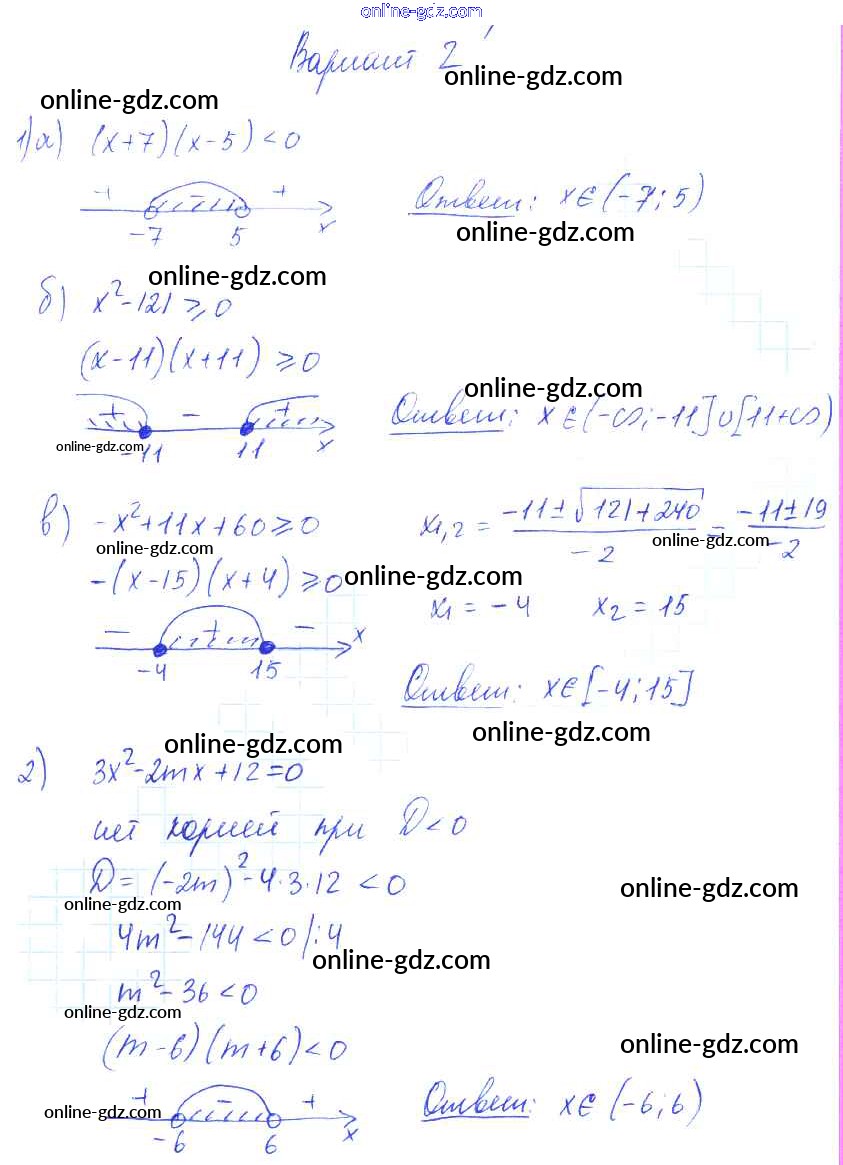 online-gdz.com
Вариант 2
online-gdz.com
online-gdz.com
1) а) (x+7)(x-5)<0
+ - + x
-7 5
Ответ: x∈(-7;5)
online-gdz.com
online-gdz.com
б) x²-121≥0
(x-11)(x+11)≥0
online-gdz.com
+ - + x
-11 11
online-gdz.com
Ответ: x∈(-∞;-11]∪[11+∞)
в) -x²+11x+60≥0
x₁,₂ = (-11±√(121+240))/(-2) = (-11±19)/(-2)
online-gdz.com
online-gdz.com
-(x-15)(x+4)≥0
online-gdz.com
x₁ = -4 x₂ = 15
- + - x
-4 15
Ответ: x∈[-4;15]
online-gdz.com
online-gdz.com
2) 3x²-2mx+12=0
нет корней при D<0
D=(-2m)²-4·3·12<0
online-gdz.com
online-gdz.com
4m²-144<0 |:4
online-gdz.com
m²-36<0
online-gdz.com
(m-6)(m+6)<0
online-gdz.com
online-gdz.com
+ - + x
-6 6
Ответ: x∈(-6;6)